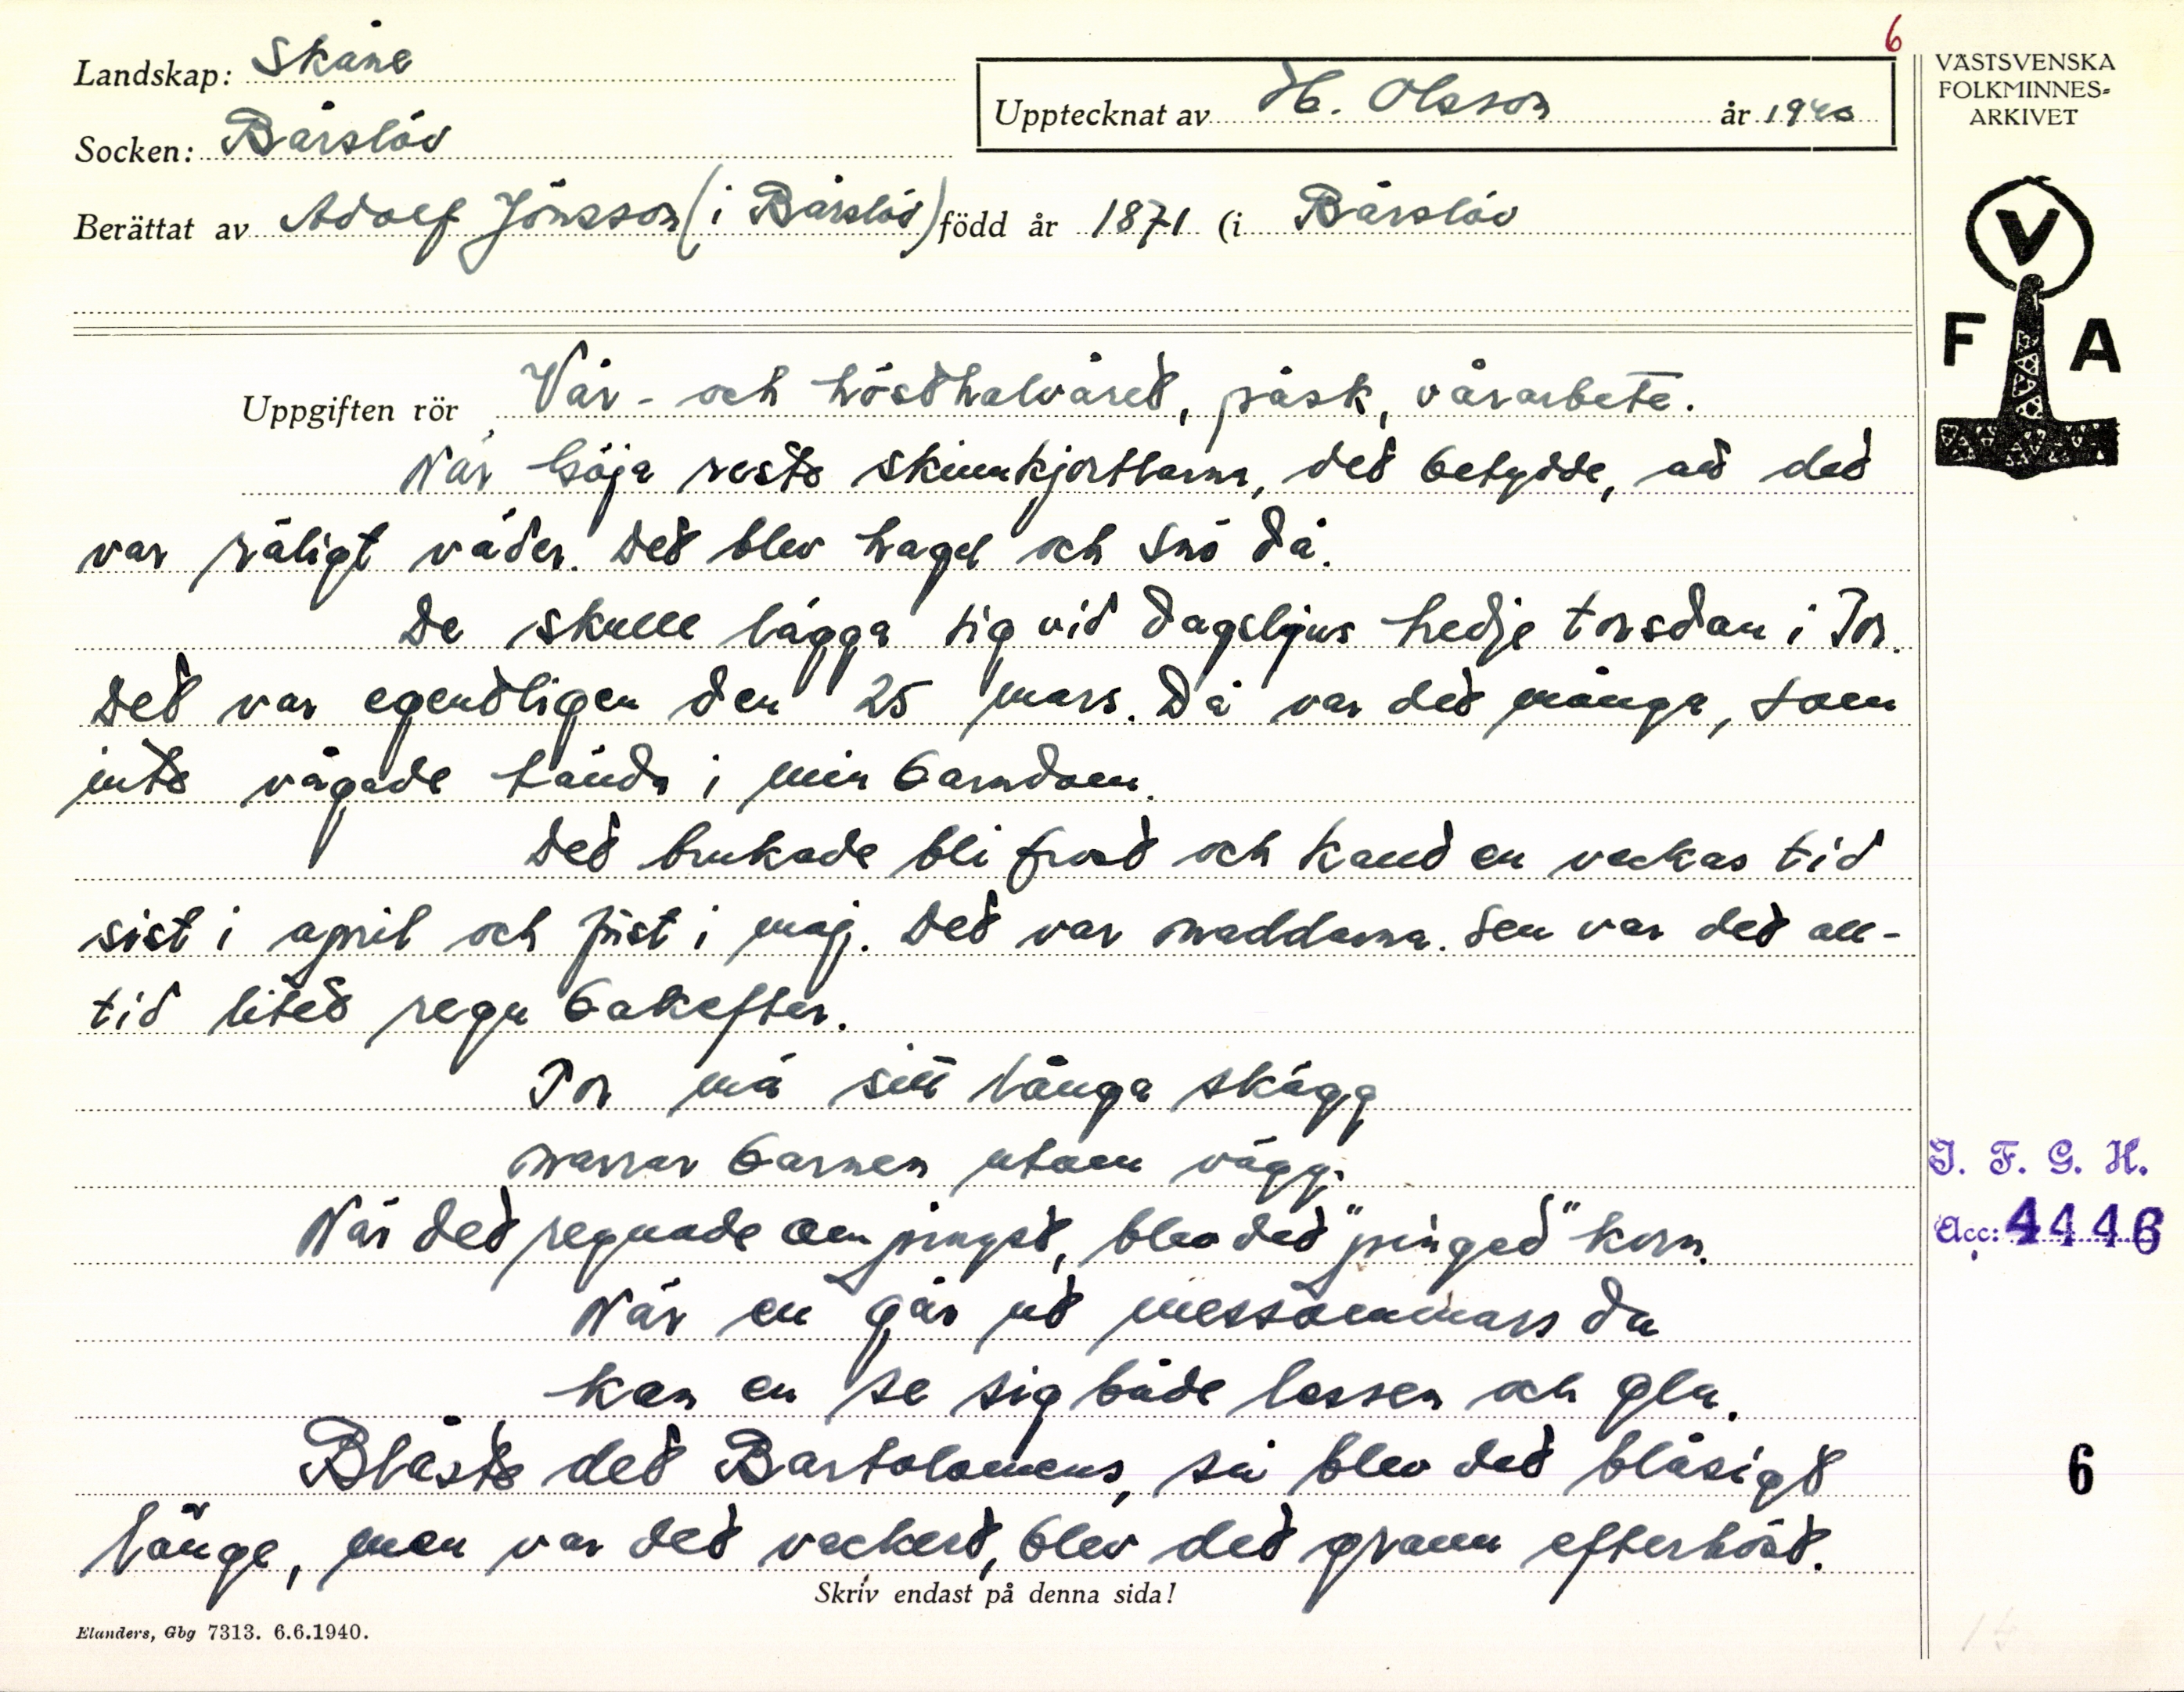 6
Landskap: Skåne
Socken: Bårslöv
Upptecknat av H. Olsson år 1940
Berättat av Adolf Jönsson (i Bårslöv) född år 1871 (i Bårslöv
VÄSTSVENSKA
FOLKMINNES-
ARKIVET
V
F A
Uppgiften rör Vår- och hösthalvåred, påsk, vårarbete.
När Göja ruste skinnkjortlarna, ded betydde, ad ded
var räligt väder. Ded blev hagel och snö då.
De skulle lägga sig vid dagsljus tredje torsdan i Tor.
Ded var egendligen den 25 mars. Då var ded många, som
inte vågade tända i min barndom.
Ded brukade bli frost och kand en veckas tid
sist i april och först i maj. Ded var maddarna. Sen var ded all-
tid lited regn bakefter.
Tor må sitt långa skägg
narrar barnen utom vägg.
När ded regnade om pingst, blev ded "pinged" korn.
När en går ud messommars da
kan en se sig både lessen och gla.
Blåste ded Bartolomeus, så blev ded blåsigt
länge, men var ded vackert, blev ded grann efterhöst.
Skriv endast på denna sida!
Elanders, Gbg 7313. 6.6.1940.
I. F. G. H.
Acc: 4446
6